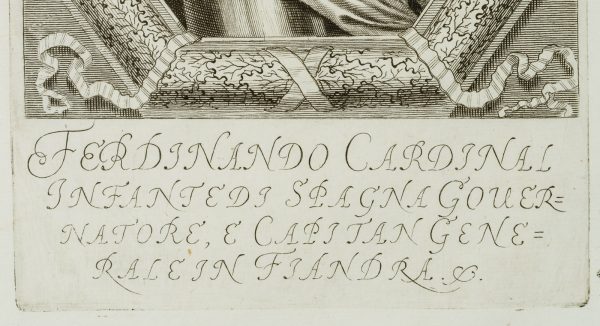 FERDINANDO CARDINAL
INFANTE DI SPAGNA GOUER=
NATORE, E CAPITAN GENE=
RALE IN FIANDRA. &.